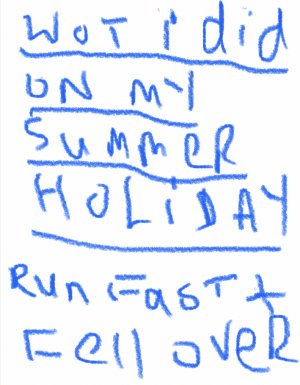 WOT i did
ON MY
SUMMER
HOLiDAY
RUn FasT +
FEll OVER